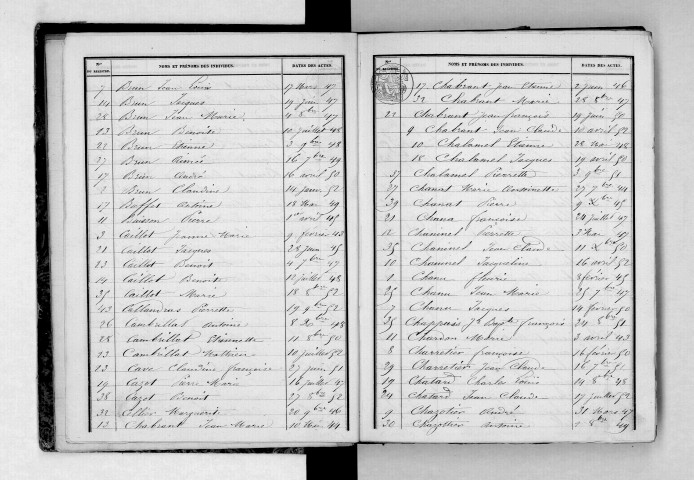 No DU REGISTRE. NOMS ET PRÉNOMS DES INDIVIDUS. DATES DES ACTES.
7 Brun Jean Louis 17 Mars 47
14 Brun Jacques 19 juin 47
28 Brun Jean Marie 4 8bre 47
13 Brun Benoite 10 juillet 48
22 Brun Etienne 3 9bre 48
27 Brun Aimée 16 7bre 49
17 Brun André 16 avril 50
2 Brun Claudine 14 juin 52
17 Buffet Antoine 18 Mai 49
11 Buisson Pierre 1er avril 45
3 Caillot Jeanne Marie 9 février 43
21 Caillot Jacques 28 juin 45
23 Caillot Benoit 4 7bre 47
14 Caillot Benoite 12 juillet 48
35 Caillot Marie 18 8bre 52
43 Callandras Pierrette 19 9bre 52
26 Cambrillat Antoine 8 bre 48
28 Cambrillat Etiennette 11 8bre 50
23 Cambrillat Mathieu 10 juillet 52
13 Cave Claudine françoise 27 juin 51
19 Cazot Pierre Marie 16 juillet 47
38 Cazot Benoit 27 8bre 52
32 Cellier Marguerite 20 9bre 46
12 Chabrant Jean Marie 10 Mai 44
No DU REGISTRE. NOMS ET PRÉNOMS DES INDIVIDUS. DATES DES ACTES.
17 Chabrant Jean Etienne 2 juin 46
32 Chabrant Marie 28 8bre 47
22 Chabrant Jean françois 19 juin 50
9 Chabrant Jean Claude 10 avril 52
10 Chalamel Etienne 22 Mai 48
18 Chalamel Jacques 19 avril 50
37 Chalamel Pierrette 3 9bre 51
27 Chanas Marie Antoinette 27 7bre 44
39 Chanas Pierre 9 Xbre 45
21 Chana françoise 24 juillet 47
12 Chaninel Pierrette 3 Mai 47
35 Chaninel Jean Claude 11 Xbre 50
10 Chaninel Jacqueline 16 avril 52
1 Chann fleurie 8 février 45
25 Chann Jean Marie 25 7bre 47
7 Chann Jacques 14 février 50
35 Chappuis Jn Bapte françois 24 8bre 51
11 Chardon Marie 3 avril 43
8 Charretier françoise 16 février 50
29 Charretier Jean Claude 16 7bre 51
19 Chatard Charles Louis 14 8bre 48
24 Chatard Jean Claude 19 juillet 52
9 Chazotier André 31 Mars 47
30 Chazottier Antoine 8bre 49